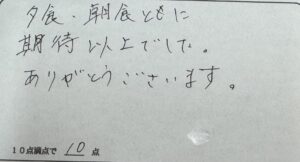 夕食・朝食ともに
期待以上でした。
ありがとうございます。
10点満点で 10 点